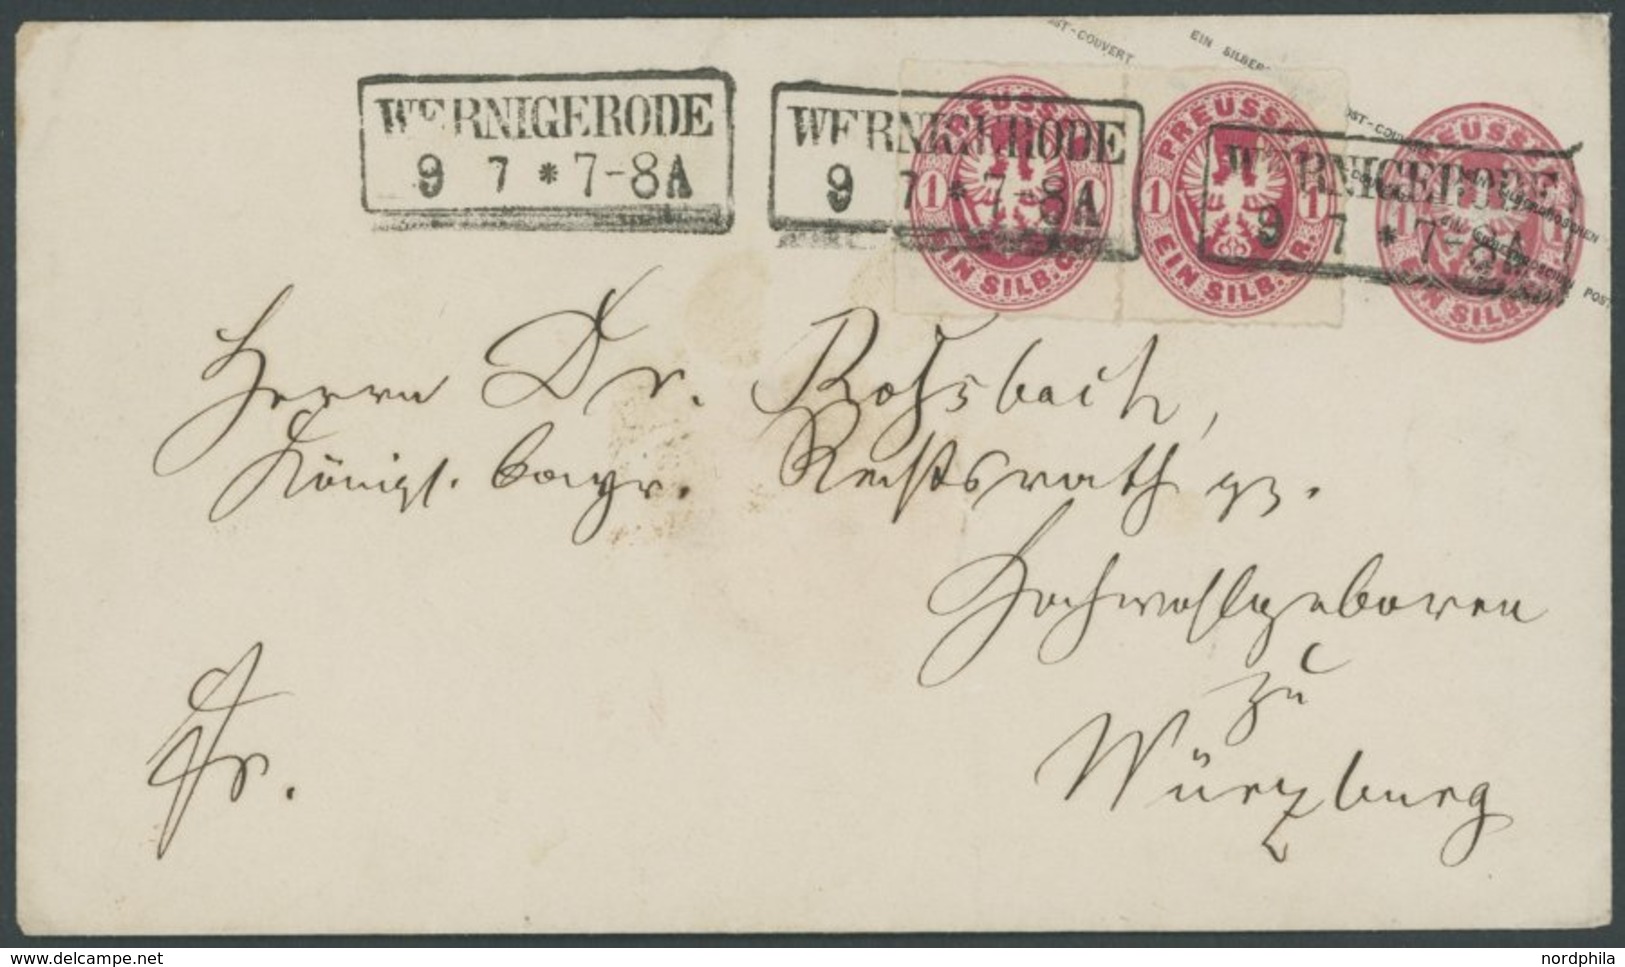 WERNIGERODE
9 7 * 7-8A
WERNIGERODE
9 7 * 7-8A
WERNIGERODE
9 7 * 7-8A
POST-COUVERT
EIN SILBER
PREUSSEN
1 1
EIN SILB.GR.
PREUSSEN
1 1
EIN SILB.GR.
PREUSSEN
1 1
EIN SILB.GR.
Herrn Dr. Rohsbach,
Königl. bayr. Reichsrath pp.
Hochwohlgeboren
zu
Würzburg
Fr.
www.delcampe.net
nordphila